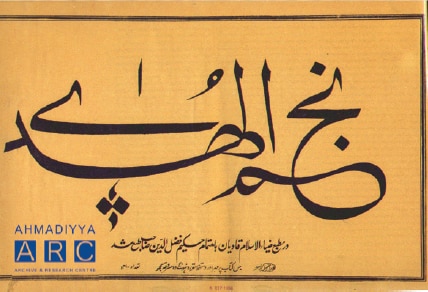 نجم الهدى
در مطبع ضیاء الاسلام قادیان باہتمام حکیم فضل الدین صاحب طبع شد
AHMADIYYA
ARC
ARCHIVE & RESEARCH CENTRE